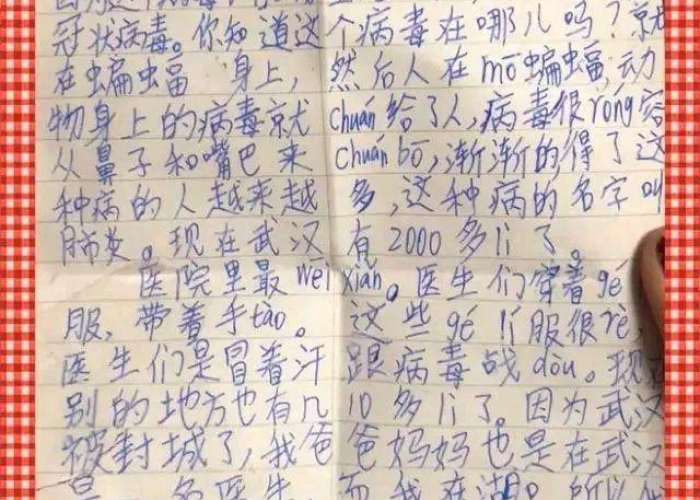 冠状病毒。你知道这个病毒在哪儿吗？就
在蝙蝠身上，然后人在mō蝙蝠，动
物身上的病毒就chuán给了人，病毒很róng容
从鼻子和嘴巴来chuán bō，渐渐的得了这
种病的人越来越多，这种病的名字叫
肺炎。现在武汉有2000多li了。
医院里最wēi xiǎn。医生们穿着gé
服、带着手tào。这些gé li服很rè，
医生们是冒着汗跟病毒战dòu。现在
别的地方也有几10多li了。因为武汉
被封城了，我爸爸妈妈也是在武汉